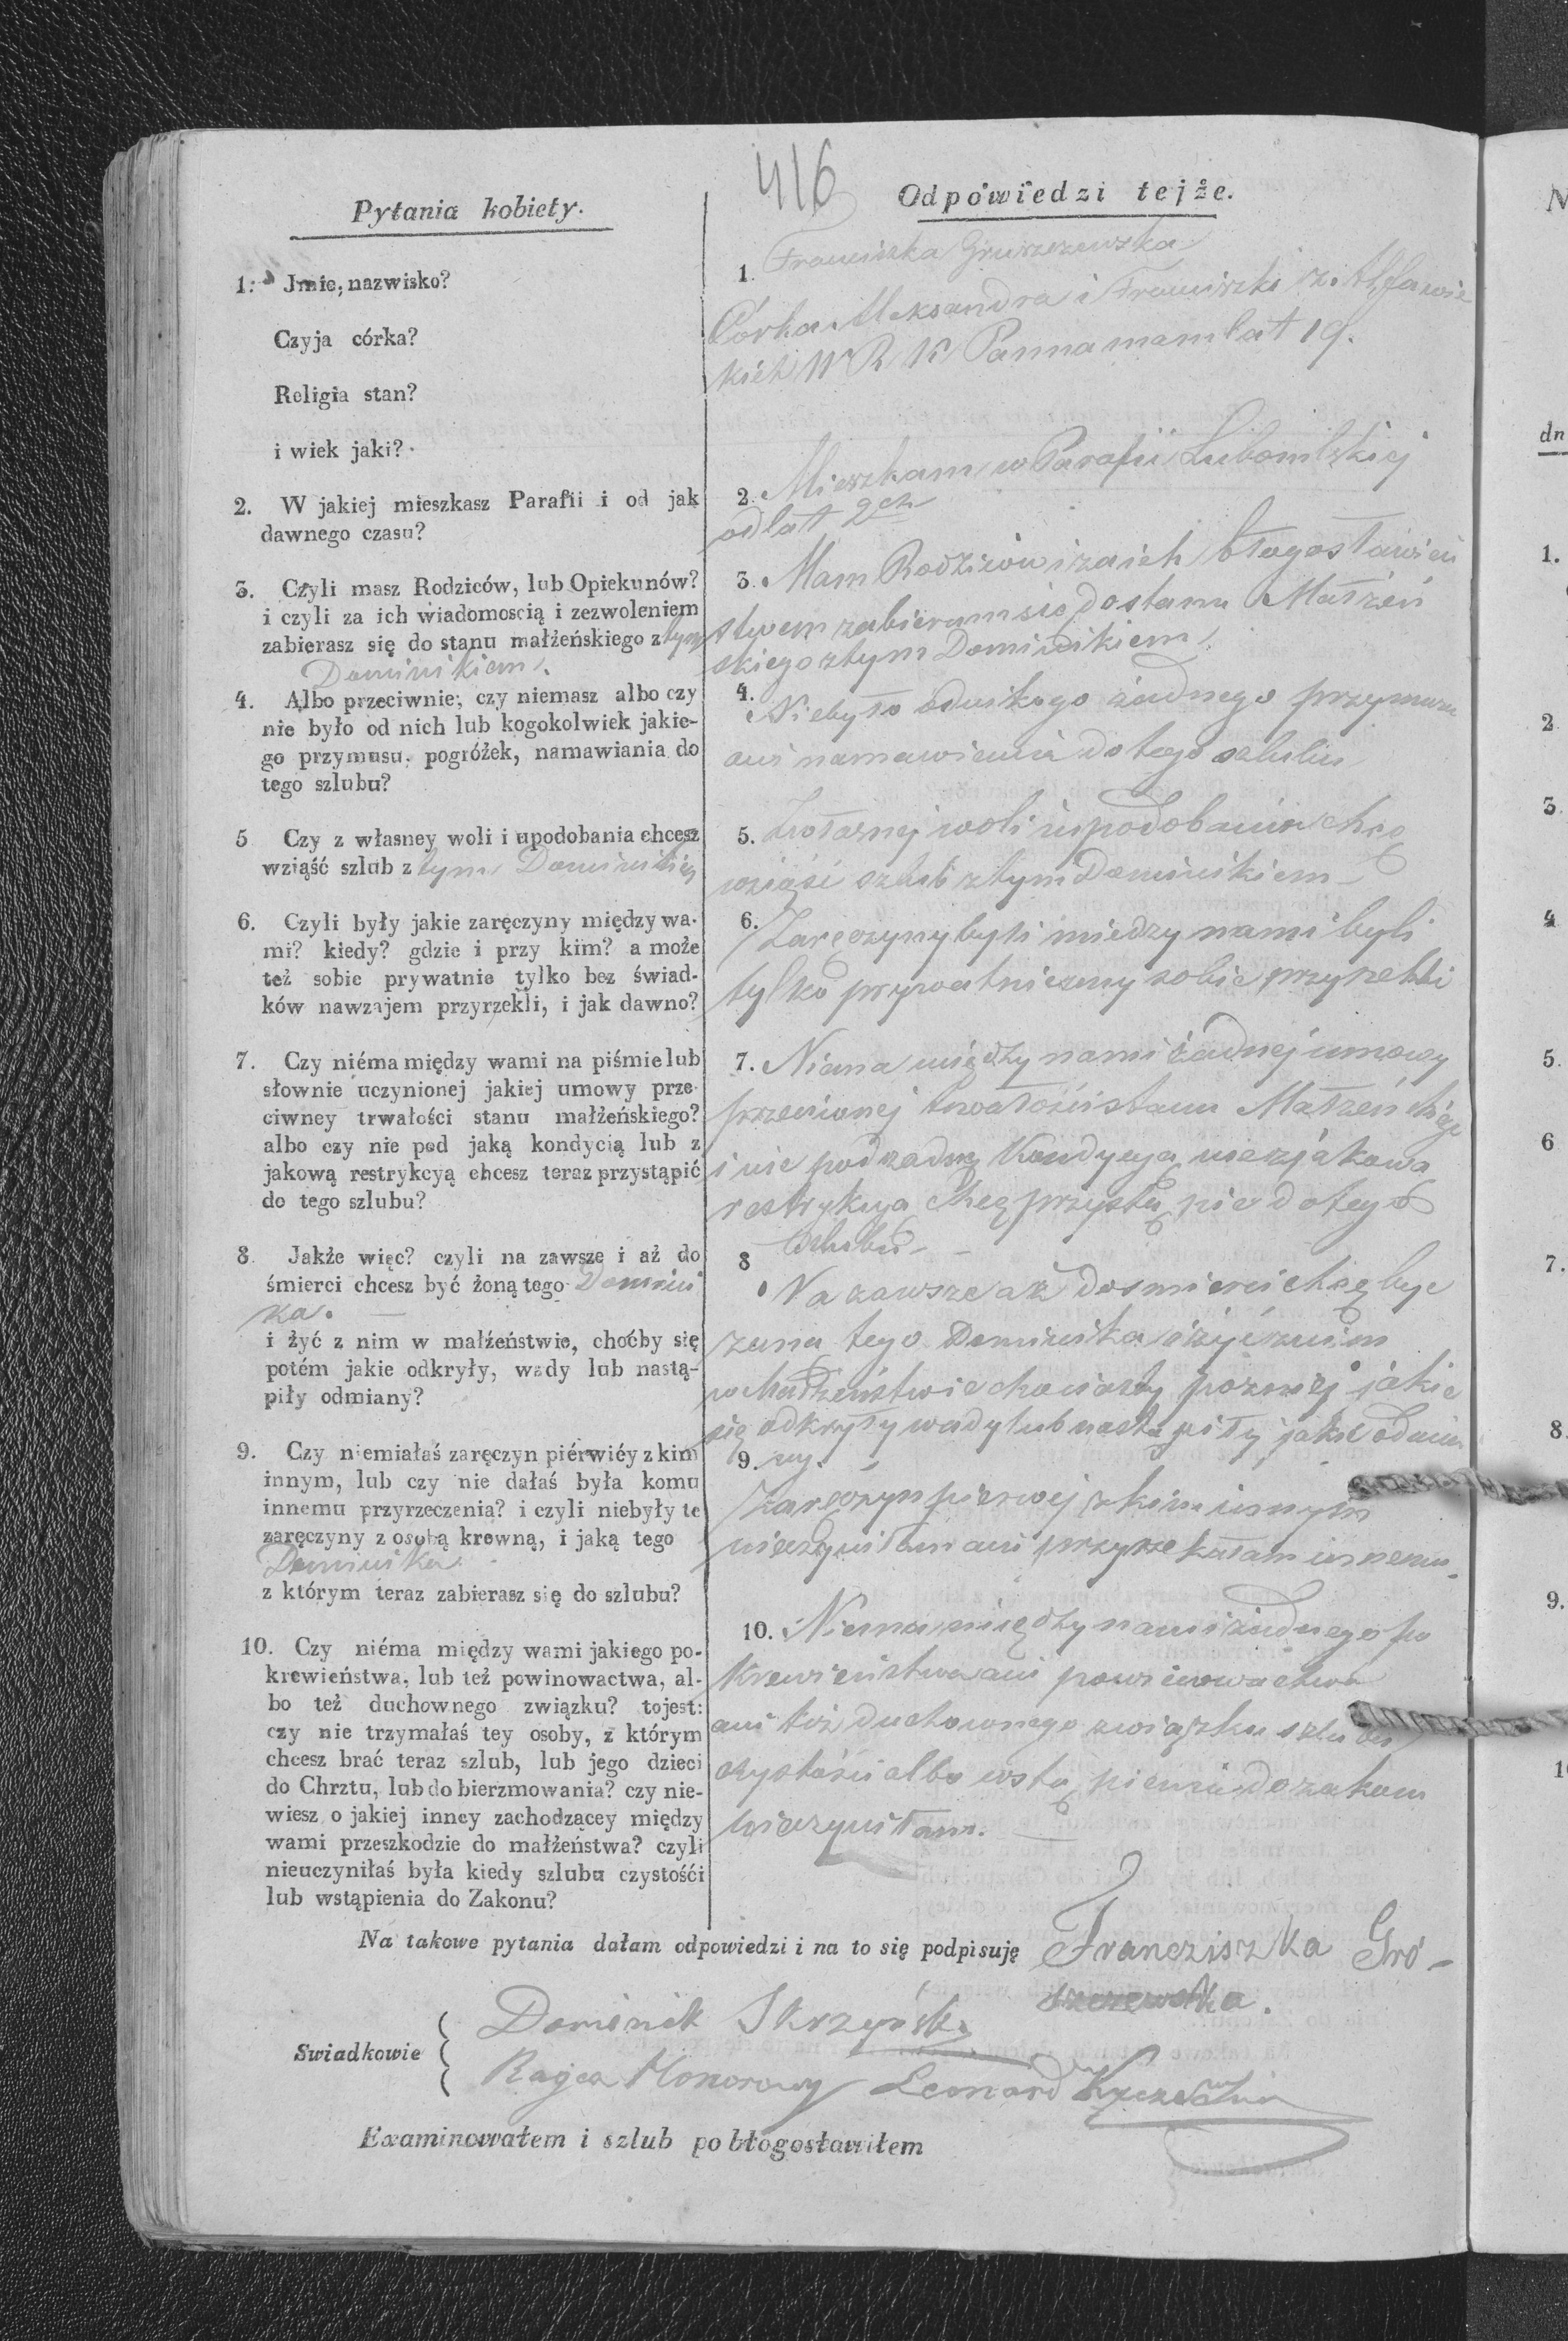 416
Pytania kobiety.
1. Jmie, nazwisko?
Czyja córka?
Religia stan?
i wiek jaki?
2. W jakiej mieszkasz Parafii i od jak
dawnego czasu?
3. Czyli masz Rodziców, lub Opiekunów?
i czyli za ich wiadomoscią i zezwoleniem
zabierasz się do stanu małżeńskiego z tym
Dominikiem.
4. Albo przeciwnie; czy niemasz albo czy
nie było od nich lub kogokolwiek jakie-
go przymusu, pogróżek, namawiania do
tego szlubu?
5 Czy z własney woli i upodobania chcesz
wziąść szlub z tym Dominikiem
6. Czyli były jakie zaręczyny między wa-
mi? kiedy? gdzie i przy kim? a może
też sobie prywatnie tylko bez świad-
ków nawzajem przyrzekli, i jak dawno?
7. Czy niéma między wami na piśmie lub
słownie uczynionej jakiej umowy prze-
ciwney trwałości stanu małżeńskiego?
albo czy nie pod jaką kondycią lub z
jakową restrykcyą chcesz teraz przystąpić
do tego szlubu?
8. Jakże więc? czyli na zawsze i aż do
śmierci chcesz być żoną tego Domini
ka.
i żyć z nim w małżeństwie, choćby się
potém jakie odkryły, wady lub nastą-
piły odmiany?
9. Czy niemiałaś zaręczyn piérwiéy z kim
innym, lub czy nie dałaś była komu
innemu przyrzeczenia? i czyli niebyły te
zaręczyny z osobą krewną, i jaką tego
Dominika
z którym teraz zabierasz się do szlubu?
10. Czy niéma między wami jakiego po-
krewieństwa, lub też powinowactwa, al-
bo też duchownego związku? tojest:
czy nie trzymałaś tey osoby, z którym
chcesz brać teraz szlub, lub jego dzieci
do Chrztu, lub do bierzmowania? czy nie-
wiesz o jakiej inney zachodzącey między
wami przeszkodzie do małżeństwa? czyli
nieuczyniłaś była kiedy szlubu czystośći
lub wstąpienia do Zakonu?
Odpowiedzi tejże.
1. Franciszka Gruszczewska
Córka Alexandra i Franciszki z
W R K Panna mam lat 19.
2. Mieszkam w Parafii Lubomlskiej
od lat 2ch
3. Mam Rodziców i za ich błogosławień
stwem zabieram sie do stanu Małżeń
skiego z tym Dominikiem
4. Niebyło od nikogo żadnego przymusu
ani namawienia do tego szlubu
5. Z własnej woli i upodobania chcę
wziąść szlub z tym Dominikiem
6. Zaręczyny byli miedzy nami byli
tylko prywatnieśmy sobie przyrekli
7. Niema między nami żadnej umowy
przeciwnej trwałości stanu Małżeńskiego
i nie pod żadną Kondycyą nie z jakową
restrykcyą chcę przystąpic do tego
szlubu
8 Na zawsze aż do smierci chcę byc
żoną tego Dominika i żyć z nim
w Małżeństwie chociażby pozniej jakie
się odkryły wady lub nastąpiły jakie odmia
ny.
9. Zaręczyn pierwej z kim innym
nieczyniłam ani przyrzekałam innemu
10. Niema między nami żadnego po
krewieństwa ani powinowactwa
ani też duchownego związku szlubu
czystości albo wstąpienia do zakonu
nieczyniłam.
Na takowe pytania dałam odpowiedzi i na to się podpisuję Francziszka Gró-
szczewska.
Swiadkowie
Dominik Skrzyński
Honorowy Leonard
Examinowałem i szlub pobłogosławiłem
N
dn
1.
2
3.
4
5.
6
7.
8.
9.